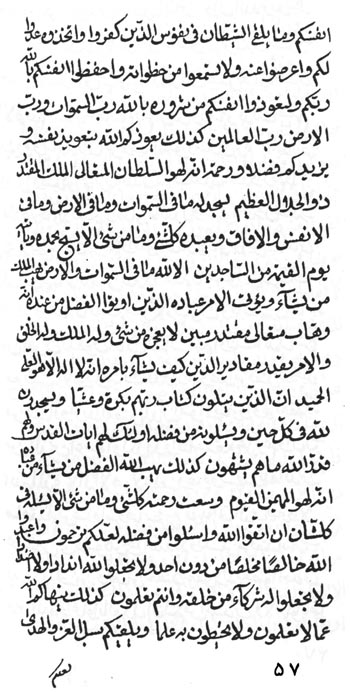 انفسكم وما يلقى الشيطان فى نفوس الذين كفروا واتخذوه عدوا
لكم واعرضوا عنه ولا تتبعوا من خطواته واحفظوا انفسكم بالله
ربكم ولتعوذوا انفسكم من شروره بالله رب السموات ورب
الارض رب العالمين كذلك يعوذكم الله بتعويذ نفسه و
يزيدكم فضلا و رحمة انه لهو السلطان المتعالى الملك المقتدر
ذو الجلال العظيم يسجد له ما فى السموات وما فى الارض وما فى
الانفس والافاق ويعبده كلشئ وما من شئ الا يسبح بحمده ويأتيه
يوم القيمة من الساجدين الا لله ما فى السموات والارض يهب الملك
من يشآء ويؤتى الامر عباده الذين اوتوا الفضل من عنده انه
وهاب متعالى مقتدر مبين لا يعجزه من شئ وله الملك وله الخلق
والامر يقدر مقادير الذين كيف يشآء بامره انه لا اله الا هو العلى
الحميد ان الذين يتلون كتاب ربهم بكرة وعشيا ويسجدون
لله فى كل حين ويسئلونه من فضله اولئك لهم ايات القدس ولهم
قدر الله ما هم يشتهون كذلك يهب الله الفضل من يشآء من عباده
انه لهو المهيمن القيوم وسعت رحمته كلشئ وما من شئ الا يسئله فى
كلشأن ان اتقوا الله واسئلوا من فضله لعلكم ترحمون واعبدوا
الله خالصا مخلصا من دون احد ولا تجعلوا لله اندادا ولا
ولا تجعلوا له شركآء من خلقه وانتم تعلمون كذلك ينهاكم الله
عما لا تعلمون ولا تحيطون به علما ويلقيكم سبل العز والهدى
لعلكم
٥٧